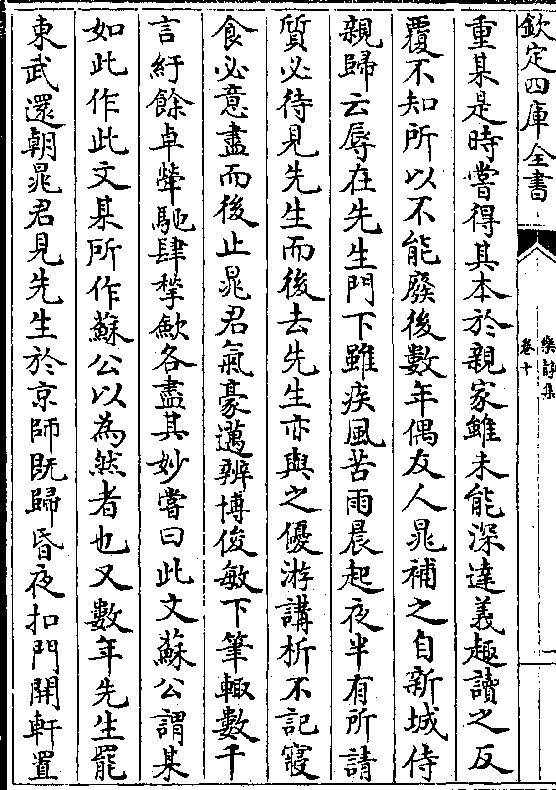 欽定四庫全書
樂靜集
卷十
一
重某是時嘗得其本於親家雖未能深達義趣讀之反
覆不知所以不能廢後數年偶友人晁補之自新城侍
親歸云辱在先生門下雖疾風苦雨晨起夜半有所請
質必待見先生而後去先生亦與之優游講析不記寢
食必意盡而後止晁君氣豪邁辨博俊敏下筆輙數千
言紆餘卓犖馳肆揫歛各盡其妙嘗曰此文蘇公謂某
如此作此文某所作蘇公以為然者也又數年先生罷
東武還朝晁君見先生於京師旣歸昏夜扣門開軒置